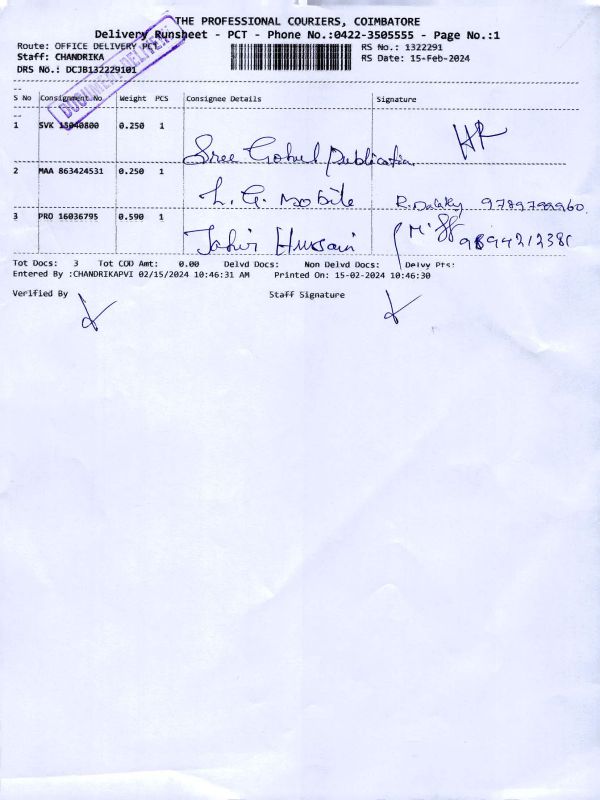 THE PROFESSIONAL COURIERS, COIMBATORE
Delivery Runsheet - PCT - Phone No.:0422-3505555 - Page No.:1
Route: OFFICE DELIVERY PCT
RS No.: 1322291
Staff: CHANDRIKA
RS Date: 15-Feb-2024
DRS No.: DCJB132229101
DOCUMENT DELIVERY
S No Consignment No Weight PCS Consignee Details Signature
1 SVK 15040800 0.250 1
Sree Gokul Publication
HR
2 MAA 863424531 0.250 1
L. G. Mobile 9789799960
3 PRO 16036795 0.590 1
Tahir Hussain 9894212381
Tot Docs: 3 Tot COD Amt: 0.00 Delvd Docs: Non Delvd Docs: Delvy Pts:
Entered By :CHANDRIKAPVI 02/15/2024 10:46:31 AM Printed On: 15-02-2024 10:46:30
Verified By Staff Signature